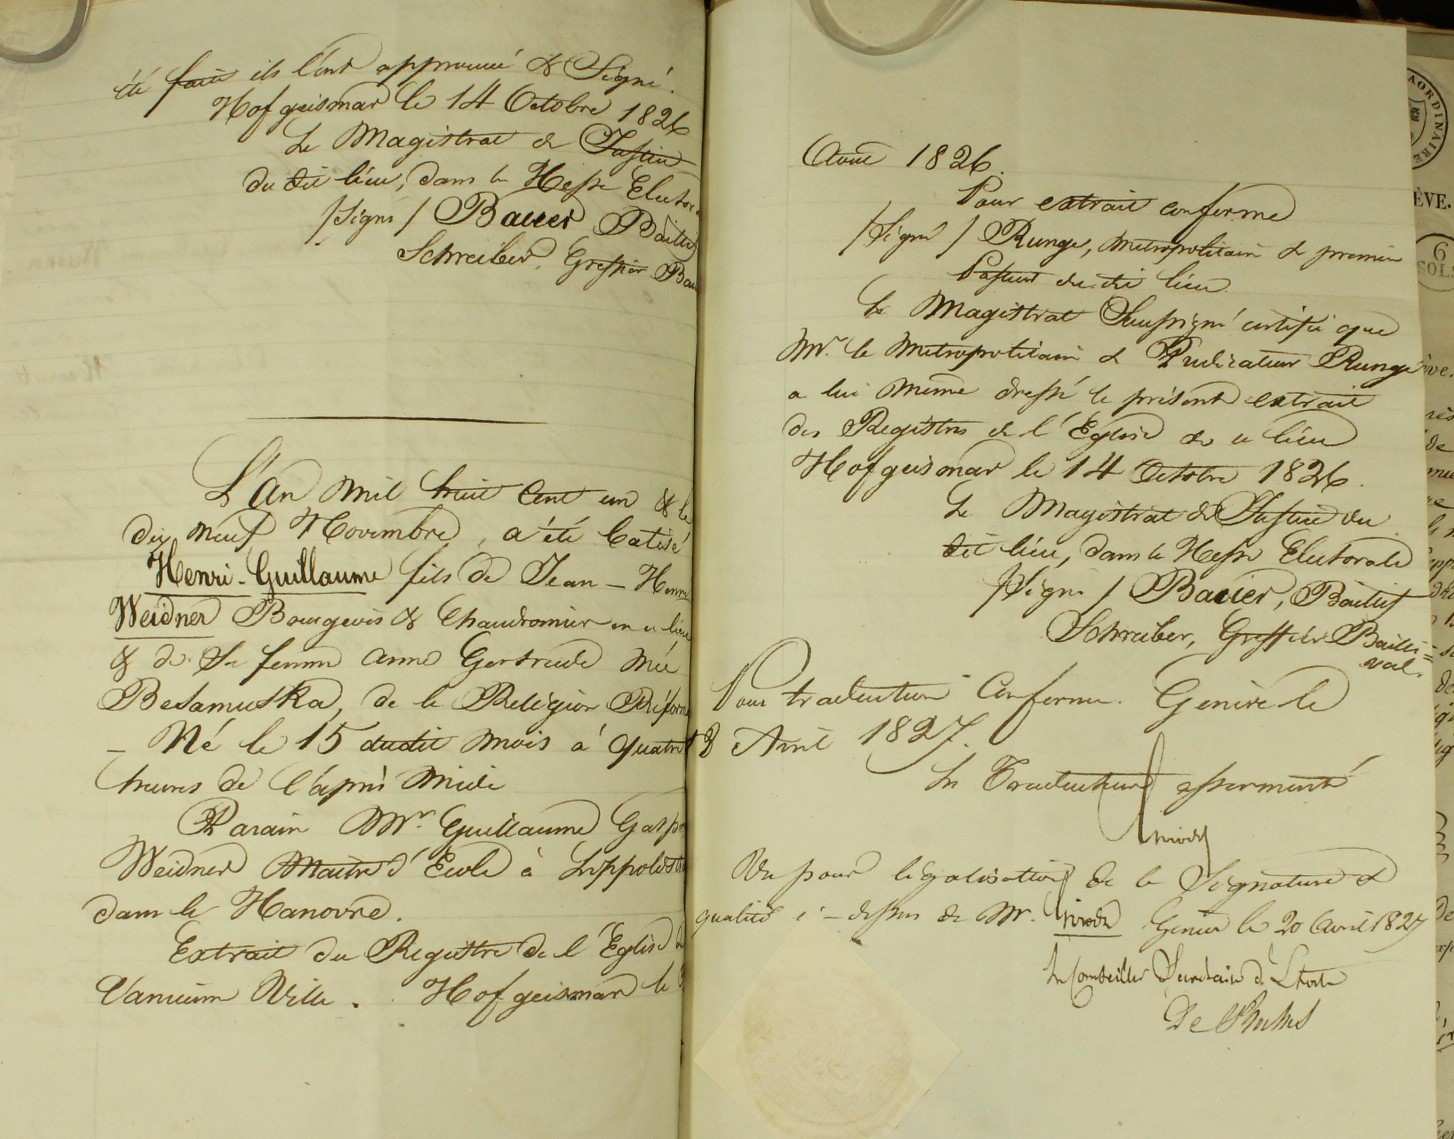 été faite ils l'ont approuvé & Signé.
Hofgeismar le 14 Octobre 1826
Le Magistrat de Justice
du dit lieu, dans la Hesse Elector
/Signé/ Bauer Bailli
Schreiber, Greffier Bai
L'An mil huit Cent un & le
dix neuf Novembre, a été batisé
Henri-Guillaume fils de Jean-Henri
Weidner Bourgeois & Chaudronnier en ce lieu
& de Sa femme Anne Gertrude née
Besamuska, de la Religion Réformé
– Né le 15 dudit mois à quatre
heures de l'après Midi
Parain Mr. Guillaume Gasp
Weidner Maitre d'Ecole à Lippolds
dans le Hanovre.
Extrait du Registre de l'Eglise de
l'ancienne Ville. Hofgeismar le
Aout 1826.
Pour extrait conforme
/Signé/ Runge, Metropolitain & premier
Pasteur du dit lieu.
Le Magistrat Soussigné certifie que
Mr. le Metropolitain & Prédicateur Runge
a lui même dressé le présent extrait
des Registres de l'Eglise de ce lieu
Hofgeismar le 14 Octobre 1826.
Le Magistrat de Justice du
dit lieu, dans la Hesse Electorale
/Signé/ Bauer, Bailli
Schreiber, Greffier Bailli=
val.
Pour traduction conforme. Genève le
Avril 1827.
Le Traducteur assermenté
Vu pour légalisation de la Signature &
qualité ci-dessus de Mr. Genève le 20 Avril 1827
Le Conseiller Secrétaire d'Etat
De
AORDINAIRE
ÈVE.
6
SOLS